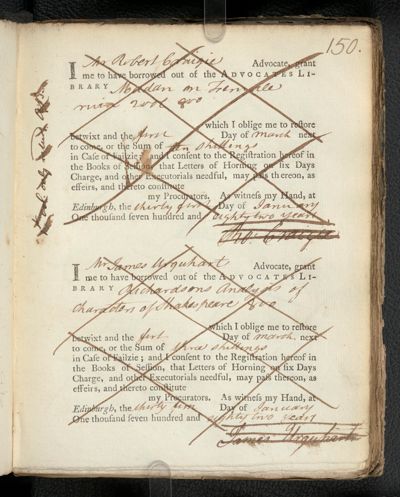 150.
I Mr Robert Craigie Advocate, grant
me to have borrowed out of the ADVOCATES LI-
BRARY Madan on Female
ruin 2 vols 8vo
which I oblige me to restore
betwixt and the first Day of March next
to come, or the Sum of ten shillings
in Case of Failzie; and I consent to the Registration hereof in
the Books of Session, that Letters of Horning on six Days
Charge, and other Executorials needful, may pass thereon, as
effeirs, and thereto constitute
my Procurators. As witness my Hand, at
Edinburgh, the thirty first Day of January
One thousand seven hundred and eighty two years
Ro: Craigie
I Mr James Urquhart Advocate, grant
me to have borrowed out of the ADVOCATES LI-
BRARY Richardsons Analysis of
characters of Shakespeare 8vo
which I oblige me to restore
betwixt and the first Day of March next
to come, or the Sum of three shillings
in Case of Failzie; and I consent to the Registration hereof in
the Books of Session, that Letters of Horning on six Days
Charge, and other Executorials needful, may pass thereon, as
effeirs, and thereto constitute
my Procurators. As witness my Hand, at
Edinburgh, the thirty first Day of January
One thousand seven hundred and eighty two years
James Urquhart